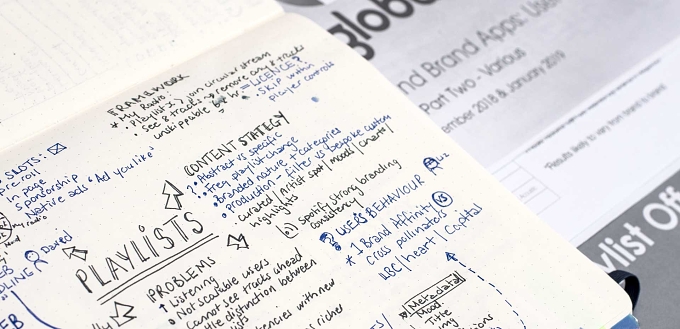 FRAMEWORK
* My Radio:
• Playlists → join circular stream
• See 8 tracks → remove any tracks
unskippable = LICENCE?
SKIP within
player controls
SLOTS:
Pre-roll
page
Sponsorship
Native ads 'Ad you like'
CONTENT STATEGY
? Abstract vs specific
• Freq playlist change
• Branded nature + categories
• production - filter vs bespoke custom
curated / Artist spot / mood / charts /
highlights
Spotify strong branding
consistency
PLAYLISTS
PROBLEMS
↑ Listening
• Not scalable users
Cannot see tracks ahead
distinction between
with new
richer
? USER'S BEHAVIOUR
* 1 Brand Affinity VS
Cross pollinators
LBC / heart / Capital
Metadata
Mood
Title
David
global
nd Brand Apps: User
Part Two - Various
ember 2018 & January 2019
*Results likely to vary from brand to brand
ylist Off